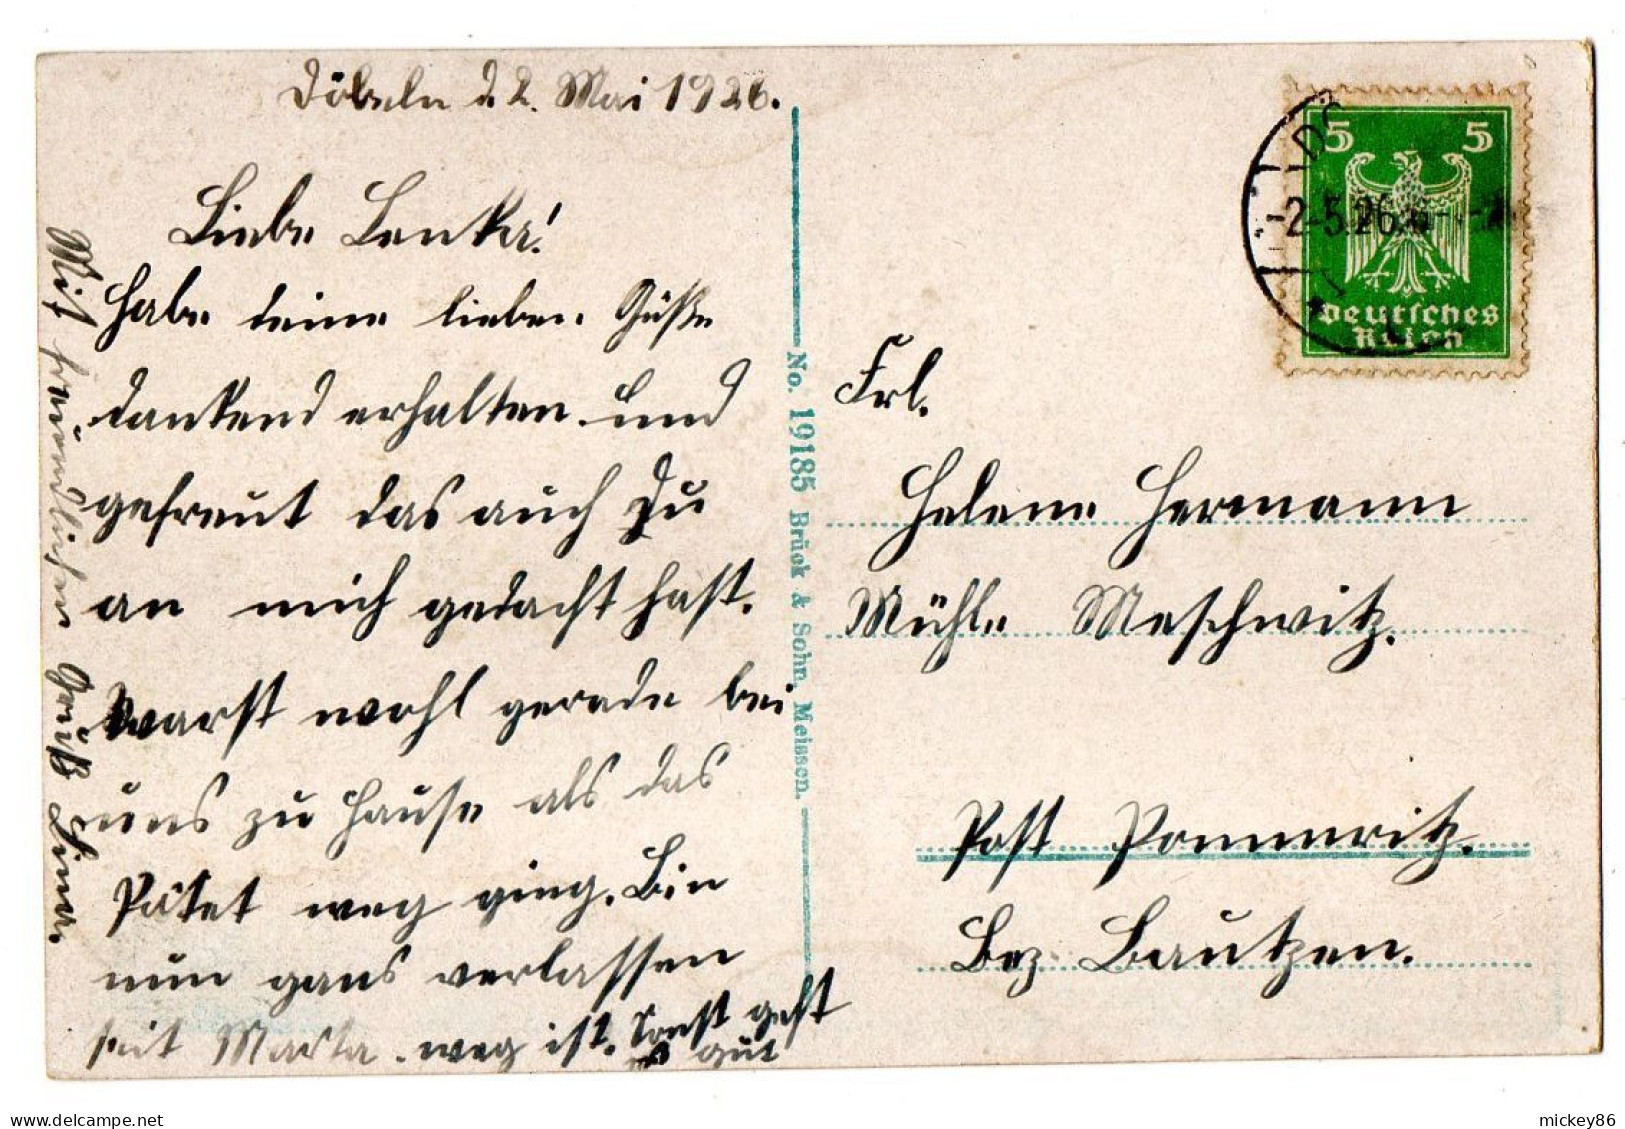 Döbeln d. 2. Mai 1926.
Liebe Lenka!
Habe deine lieben Güße
dankend erhalten und
gefreut das auch Du
an mich gedacht hast.
Warst wohl gerade bei
uns zu Hause als das
Paket weg ging. Bin
nun gans verlassen
seit Marta weg ist. Sonst geht
es gut
Mit freundlichen Gruß Lina.
No. 19185 Brück & Sohn, Meissen.
5 5
Deutsches
Reich
-2.-5.26
Frl.
Helene Hermann
Mühle Meschwitz.
Post Pommritz.
Bez. Bautzen.
delcampe.net
mickey86